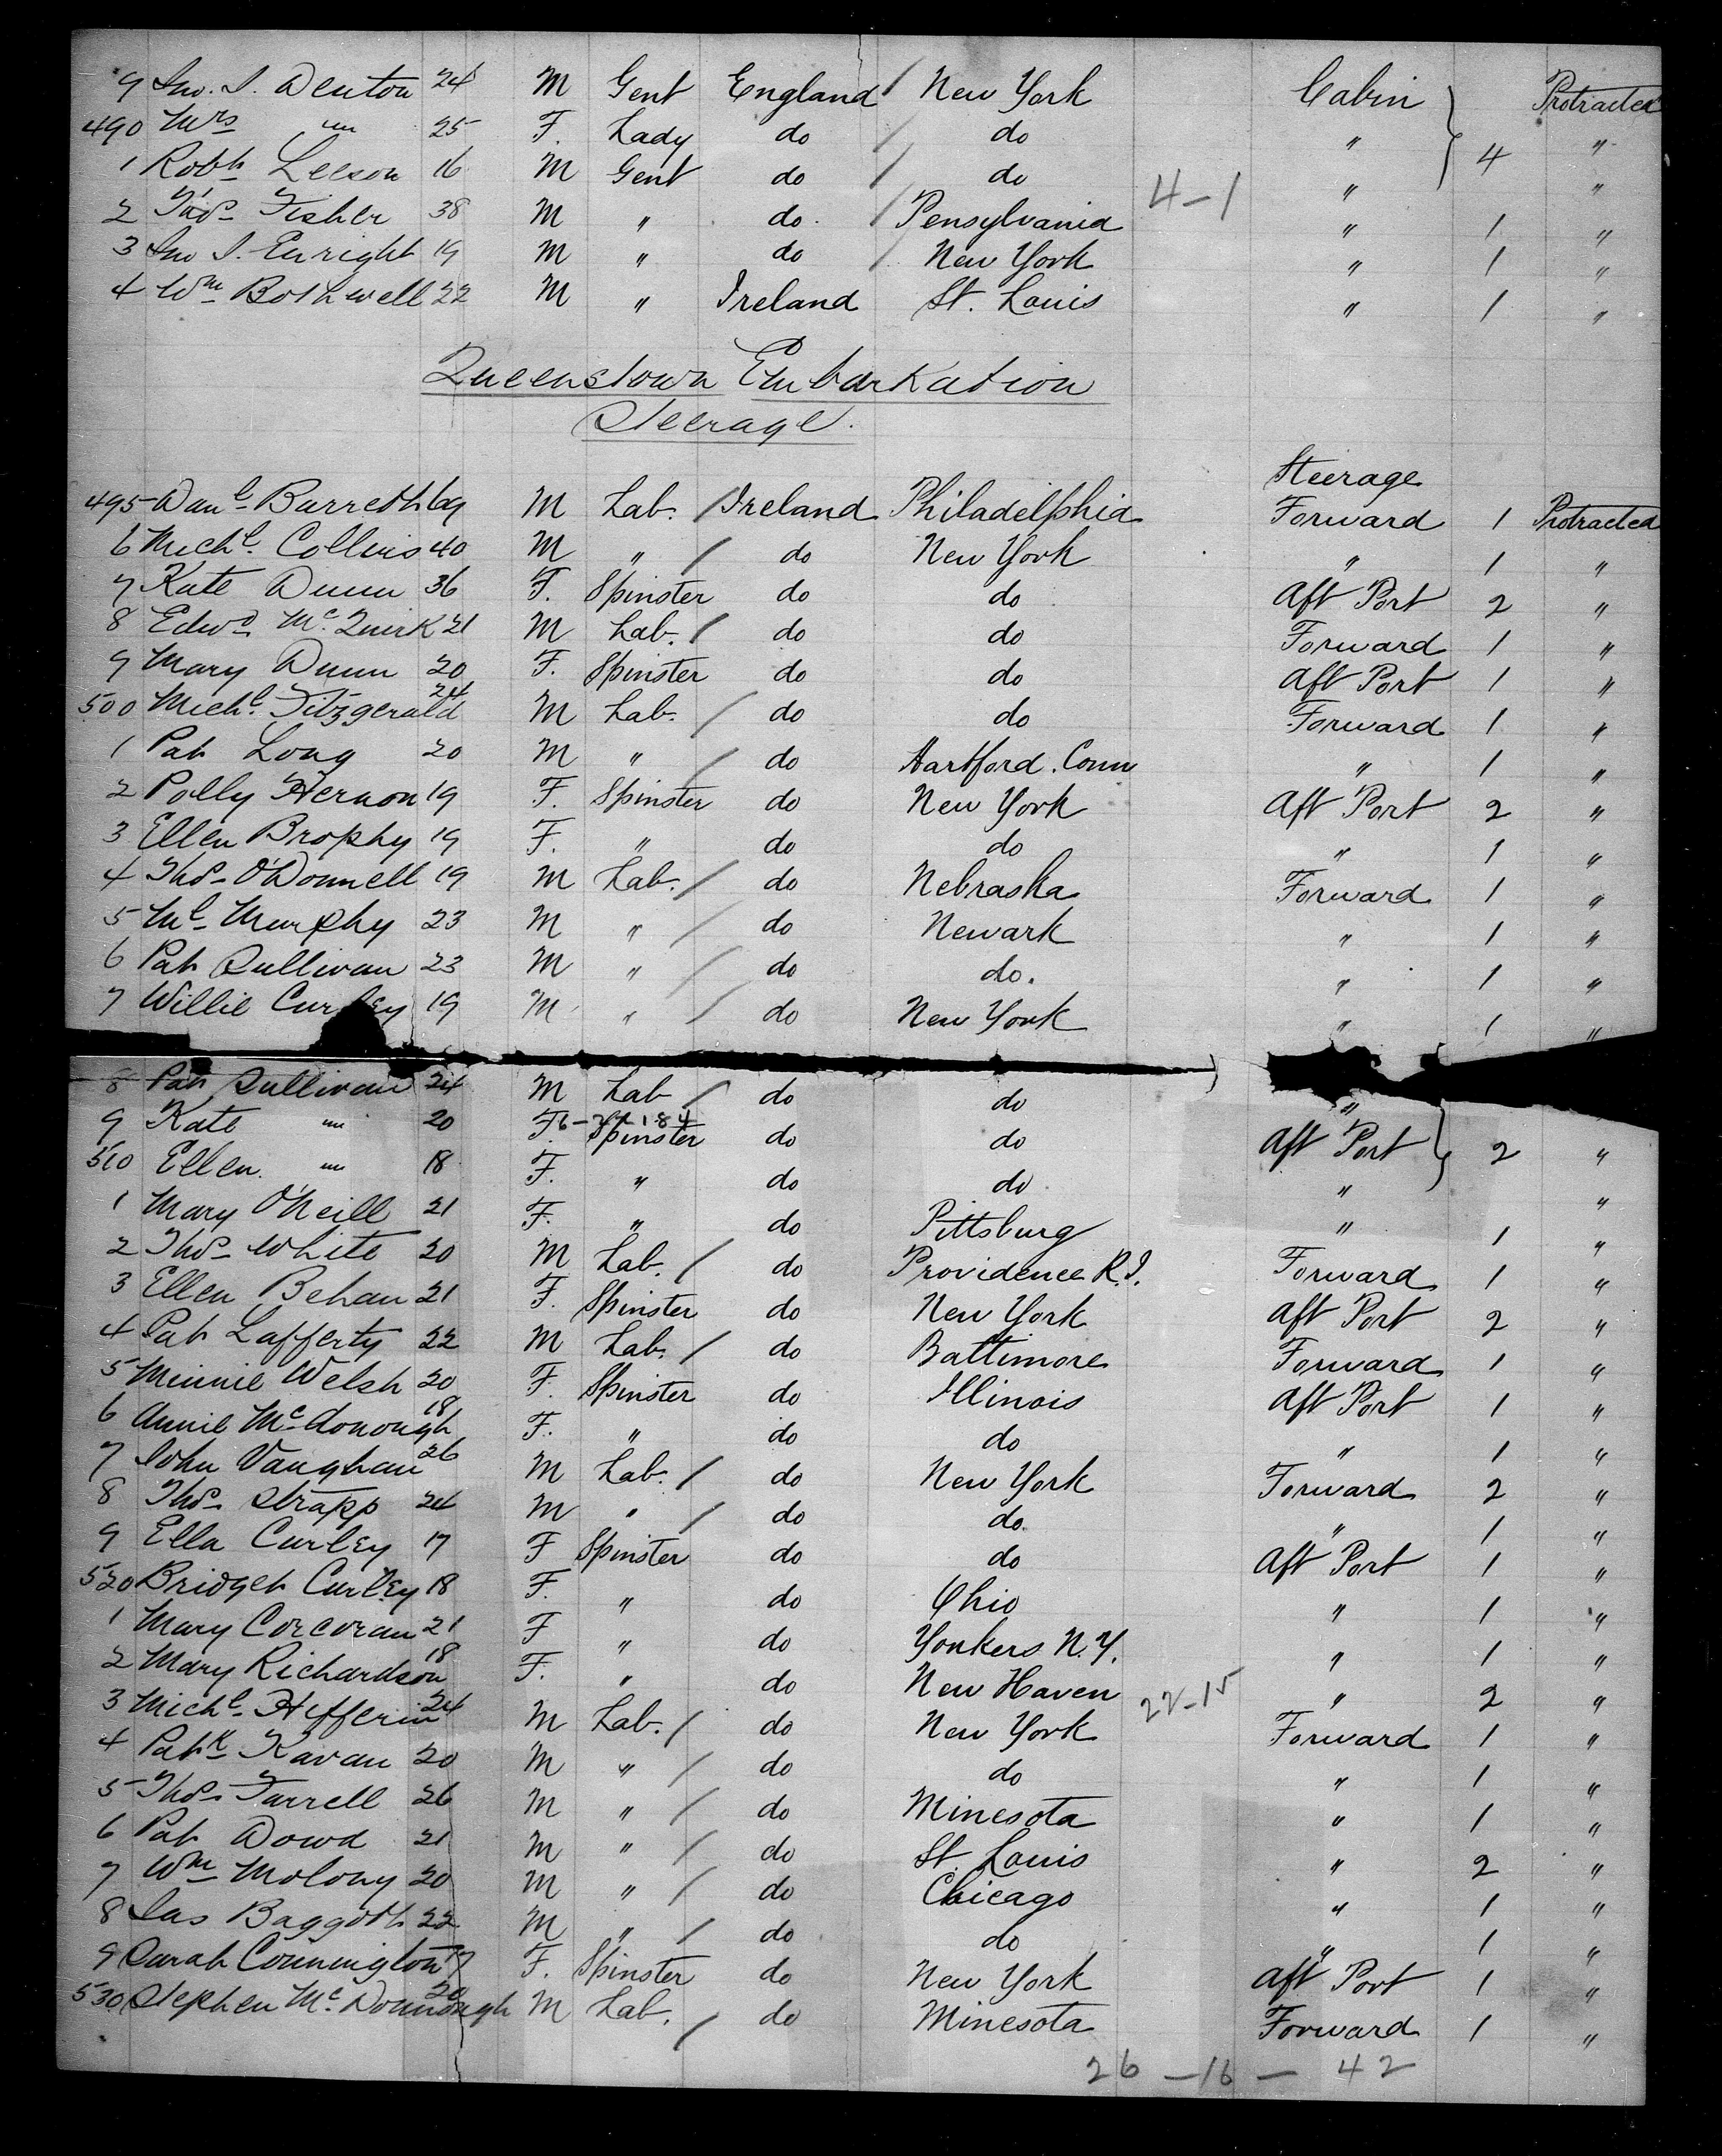 9 Jno. I. Denton 24 M Gent England / New York Cabin Protracted
490 Mrs " 25 F. Lady do / do " "
1 Robt Leeson 16 M Gent do / do " 4 "
4-1
2 Thos Fisher 38 M " do. / Pensylvania " 1 "
3 Jno I. Enright 19 M " do / New York " 1 "
4 Wm Bothwell 22 M " Ireland St. Louis " 1 "
Queenstown Embarkation
Steerage.
Steerage
495 Danl Barrett 69 M Lab. / Ireland Philadelphia Forward 1 Protracted
6 Michl. Collins 40 M " / do New York " 1 "
7 Kate Dunn 36 F. Spinster do do Aft Port 2 "
8 Edwd McQuirk 21 M Lab. / do do Forward 1 "
9 Mary Dunn 20 F. Spinster do do Aft Port 1 "
500 Michl. Fitzgerald 24 M Lab. / do do Forward 1 "
1 Pat Long 20 M " / do Hartford. Conn " 1 "
2 Polly Hernon 19 F. Spinster do New York Aft Port 2 "
3 Ellen Brophy 19 F. " do do " 1 "
4 Thos O'Donnell 19 M Lab. / do Nebraska Forward 1 "
5 Ml Murphy 23 M " / do Newark " 1 "
6 Pat Sullivan 23 M " / do do. " 1 "
7 Willie Curley 19 M " / do New York " 1 "
8 Pat Sullivan 24 M Lab / do do "
6-
9 Kate " 20 F. Spinster do do Aft Port 2 "
510 Ellen. " 18 F. " do do " "
1 Mary O'Neill 21 F. " do Pittsburg " 1 "
2 Thos White 20 M Lab. / do Providence R.I. Forward 1 "
3 Ellen Behan 21 F. Spinster do New York Aft Port 2 "
4 Pat Lafferty 22 M Lab. / do Baltimore Forward 1 "
5 Minnie Welsh 20 F. Spinster do Illinois Aft Port 1 "
6 Annie McDonough 18 F. " do do " 1 "
7 John Vaughan 26 M Lab. / do New York Forward 2 "
8 Thos Strapp 24 M " / do do. " 1 "
9 Ella Curley 17 F Spinster do do Aft Port 1 "
520 Bridget Curley 18 F. " do Ohio " 1 "
1 Mary Corcoran 21 F " do Yonkers N.Y. " 1 "
2 Mary Richardson 18 F. " do New Haven " 2 "
22-15
3 Michl Hefferin 24 M Lab. / do New York Forward 1 "
4 Patk Kavan 20 M " / do do " 1 "
5 Thos Farrell 26 M " / do Minesota " 1 "
6 Pat Dowd 21 M " / do St. Louis " 2 "
7 Wm Molony 20 M " / do Chicago " 1 "
8 Jas Baggott 22 M " / do do " 1 "
9 Sarah Connington 17 F. Spinster do New York Aft Port 1 "
530 Stephen McDonnough 20 M Lab. / do Minesota Forward 1 "
26 - 16 - 42